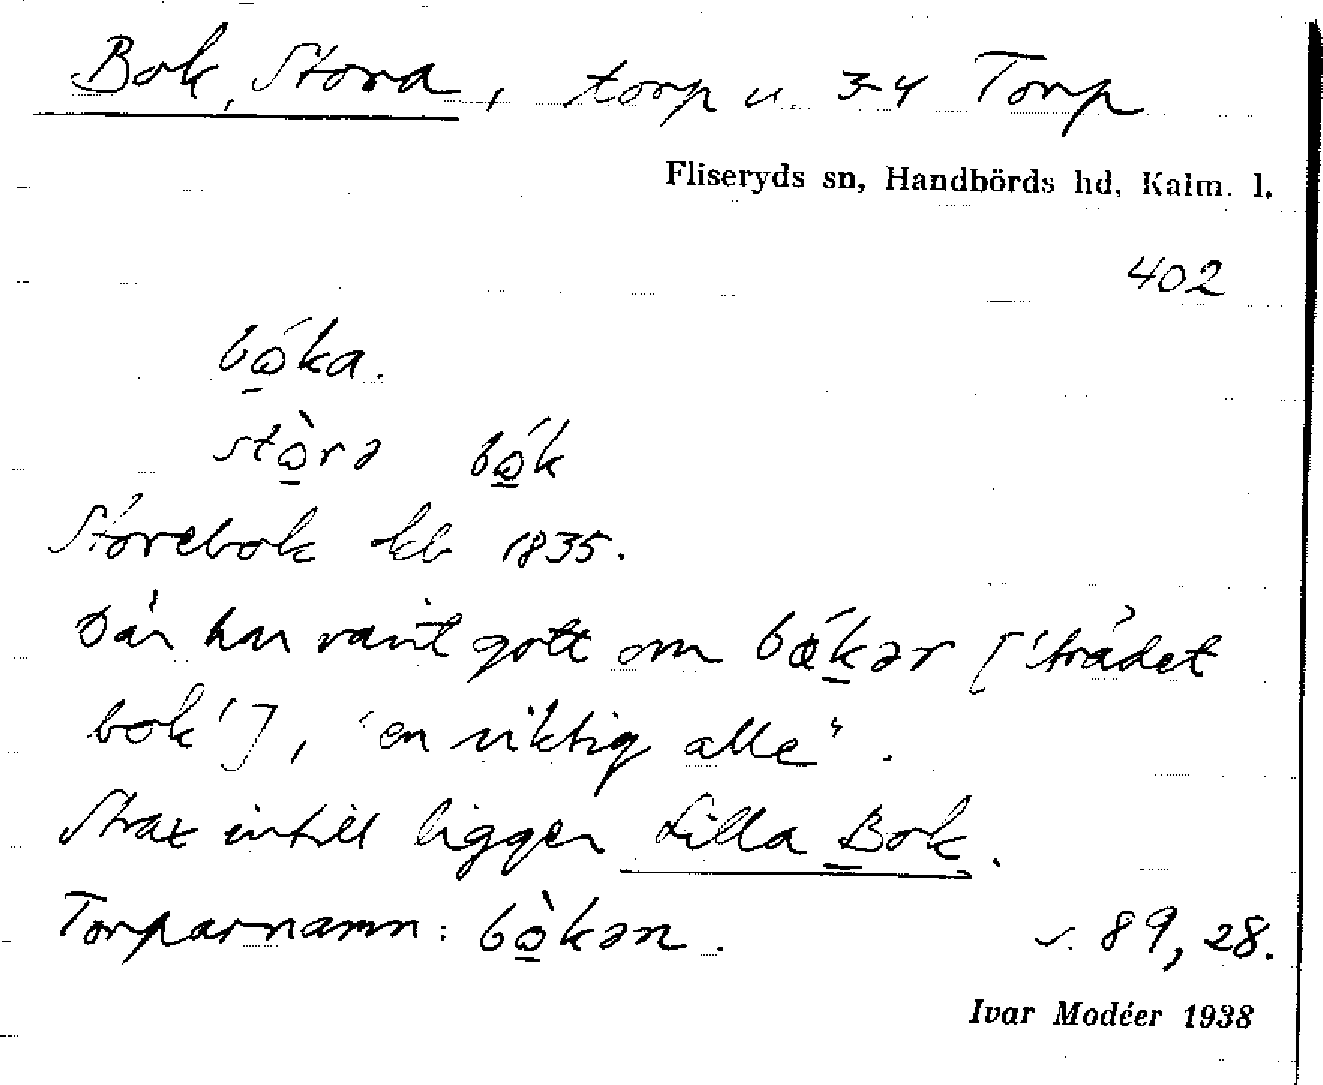 Bok, Stora, torp u. 3-4 Torp
Fliseryds sn, Handbörds hd, Kalm. l.
402
bo̱̊́ka.
sto̱̊̀rə bo̱̊́k
Storebok kb 1835.
Där har varit gott om bǿḵər ['trädet
bok'], "en viktig alle".
Strax intill ligger Lilla Bok.
Torparnamn: bo̱̊̀kən. s. 89, 28.
Ivar Modéer 1938